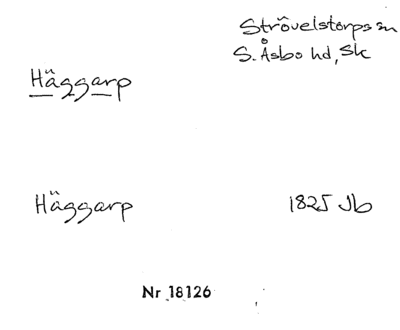 Strövelstorps sn
S. Åsbo hd, Sk
Häggarp
Häggarp 1825 Jb
Nr 18126